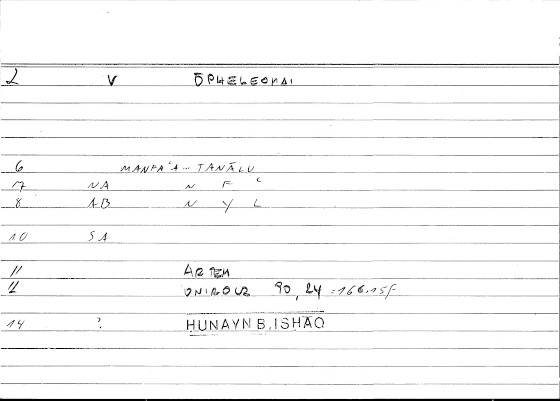 2 V ŌPHELEOMAI
6 MANFA'A - TANĀLU
7 NA N F ʿ
8 AB N Y L
10 SA
11 ARTEM
12 ONIROCR 90, 24 = 166.15f
14 ? HUNAYN B. ISHAQ